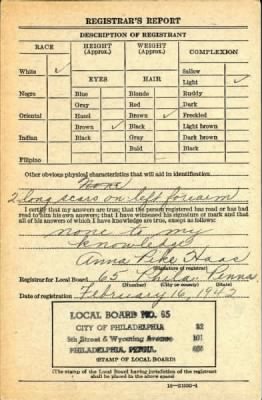 REGISTRAR'S REPORT
DESCRIPTION OF REGISTRANT
RACE HEIGHT (Approx.) WEIGHT (Approx.) COMPLEXION
White ✓ Sallow
EYES HAIR Light ✓
Negro Blue Blonde Ruddy
Gray Red Dark
Oriental Hazel Brown ✓ Freckled
Brown ✓ Black Light brown
Indian Black Gray Dark brown
Bald Black
Filipino
Other obvious physical characteristics that will aid in identification
None
2 long scars on left forearm
I certify that my answers are true; that the person registered has read or has had read to him his own answers; that I have witnessed his signature or mark and that all of his answers of which I have knowledge are true, except as follows:
none to my
knowledge
Anna Pike Haas
(Signature of registrar)
Registrar for Local Board 65 Phila. Penna
(Number) (City or county) (State)
Date of registration February 16, 1942
LOCAL BOARD NO. 65
CITY OF PHILADELPHIA
5th Street & Wyoming Avenue 101
PHILADELPHIA, PENNA.
(STAMP OF LOCAL BOARD)
(The stamp of the Local Board having jurisdiction of the registrant shall be placed in the above space)